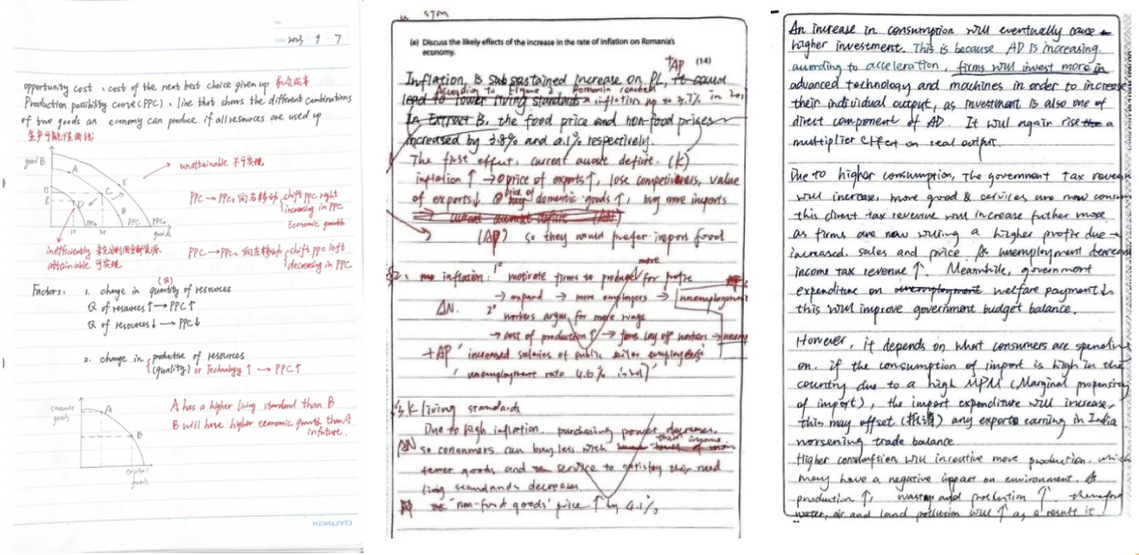 2023 9 7
opportunity cost : cost of the next best choice given up 机会成本
Production possibility curve (PPC) : line that shows the different combinations
of two goods an economy can produce if all resources are used up
生产可能性曲线
good B
A
E
C
D
B
PPC
PPC₁
unattainable 不可实现
PPC → PPC₁ 向右移动, shift PPC right
increasing in PPC
Economic growth
PPC → PPC₂ 向左移动, shift PPC left
decreasing in PPC.
attainable 可实现
Factors: 1. change in quantity of resources
(Q)
Q of resources ↑ → PPC ↑
Q of resources ↓ → PPC ↓
2. change in productive of resources
(quality) or Technology ↑ → PPC ↑
consumer goods
A
B
capital goods
A has a higher living standard than B
B will have higher economic growth than A
in future.
KOKUYO
(e) Discuss the likely effects of the increase in the rate of inflation on Romania's
economy.
(14)
+AP
Inflation is sustained increase on PL, it could
According to Figure 2, Romania reached
lead to lower living standard inflation up to 3.7% in
In Extract B, the food price and non-food prices
increased by 3.8% and 4.1% respectively.
The first effect, current account (K)
inflation ↑ → price of exports ↑, lose competitiveness, value
of exports ↓ domestic goods ↑, buy more imports
(AP) so they would prefer import food
§2. inflation: 1° motivate firms to produce more for profit
→ expand → more → unemployment
AN. 2° workers argue for more wage
→ cost of production ↑ → firms lay of workers →
+AP 'increased salaries of public sector employees'
'unemployment rate 4.6% in
§3 K living standards
Due to high inflation, purchasing power decreases.
AN so consumers can buy less with their income
fewer goods and service to satisfy their need
living standards decreases
'non-food goods' price ↑ by 4.1%
An increase in consumption will eventually cause
higher investment. This is because AD is increasing.
according to acceleration, firms will invest more in
advanced technology and machines in order to increase
their individual output, as investment is also one of
direct component of AD. It will again rise a
multiplier effect on real output.
Due to higher consumption, The government tax revenue
will increase, more good & services are now
this direct tax revenue will increase futher more
as firms are now a higher profit due
increased sales and price. As unemployment decreases
income tax revenue ↑. Meanwhile, government
expenditure on welfare payment ↓
this will improve government budget balance.
However, it depends on what consumers are spending
on. if the consumption of import is high in the
country due to a high MPM (Marginal propensity
of import), the import expenditure will increase.
this may offset (抵消) any exports earning in India
worsening trade balance
Higher consumption will incentive more production. which
may have a negative impact on environment.
production ↑, and pollution ↑. therefore
water, air and land pollution will ↑ as a result it